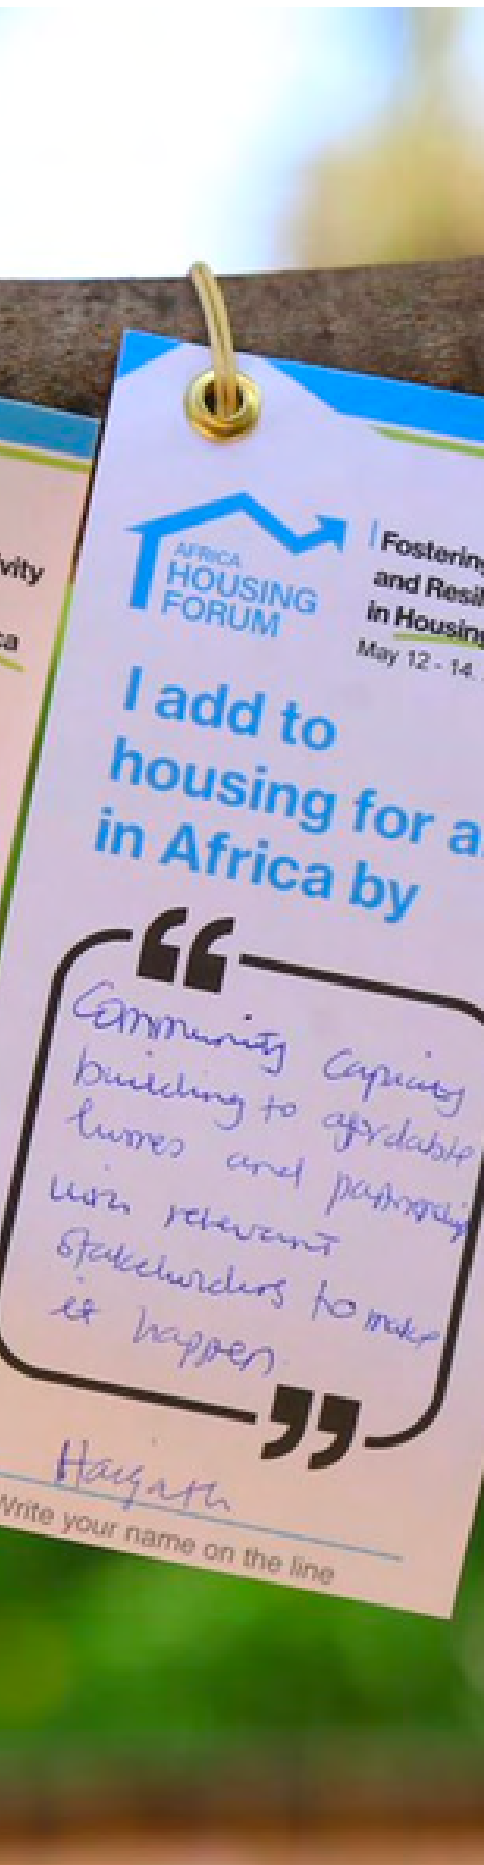 vity
ca
AFRICA
HOUSING
FORUM
Fostering
and Resil
in Housing
May 12 - 14.
I add to
housing for a
in Africa by
Community Capacity
building to afordable
homes and partnership
with relevant
stakeholders to make
it happen.
Write your name on the line